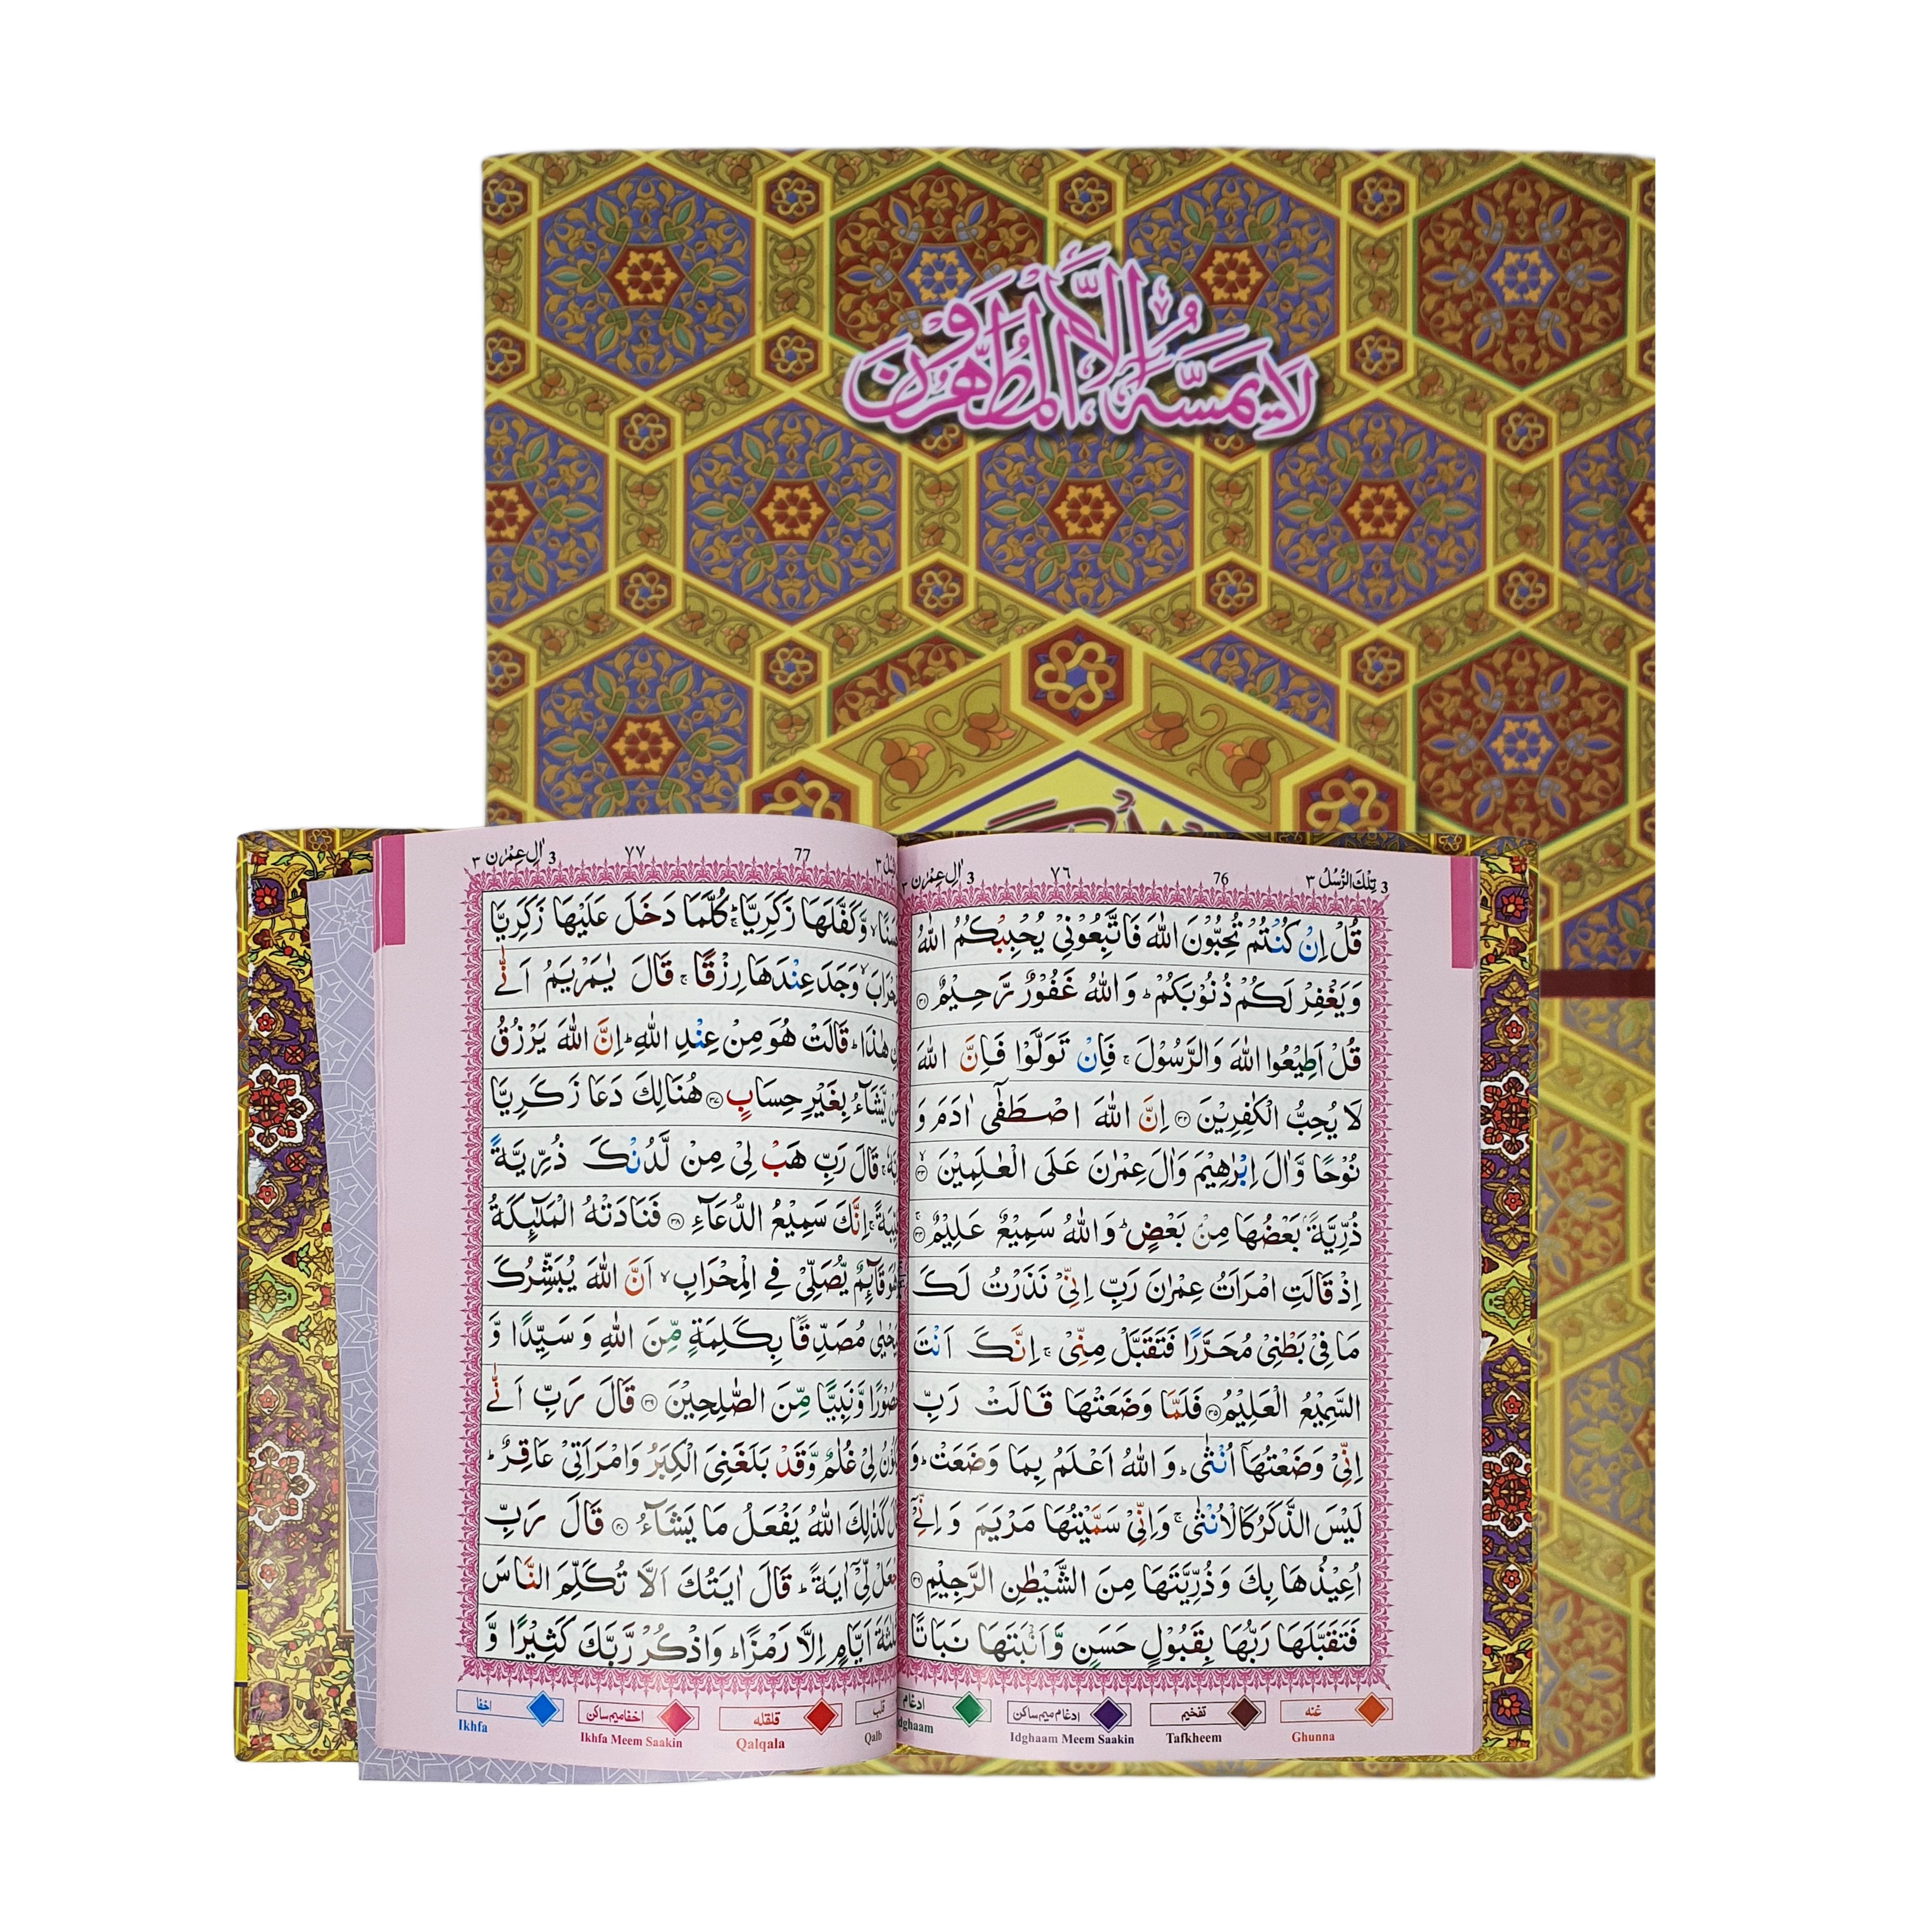 لَا يَمَسُّهُ إِلَّا الْمُطَهَّرُونَ
3 تِلْكَ الرُّسُلُ ٣
76
٧٦
3 اٰلِ عِمْرٰن ٣
قُلْ اِنْ كُنْتُمْ تُحِبُّوْنَ اللّٰهَ فَاتَّبِعُوْنِيْ يُحْبِبْكُمُ اللّٰهُ
وَيَغْفِرْ لَكُمْ ذُنُوْبَكُمْ ؕ وَاللّٰهُ غَفُوْرٌ رَّحِيْمٌ ۝۳۱
قُلْ اَطِيْعُوا اللّٰهَ وَالرَّسُوْلَ ۚ فَاِنْ تَوَلَّوْا فَاِنَّ اللّٰهَ
لَا يُحِبُّ الْكٰفِرِيْنَ ۝۳۲ اِنَّ اللّٰهَ اصْطَفٰۤى اٰدَمَ وَ
نُوْحًا وَّاٰلَ اِبْرٰهِيْمَ وَاٰلَ عِمْرٰنَ عَلَى الْعٰلَمِيْنَ ۝۳۳ۙ
ذُرِّيَّةًۢ بَعْضُهَا مِنْۢ بَعْضٍ ؕ وَاللّٰهُ سَمِيْعٌ عَلِيْمٌ ۝۳۴ۚ
اِذْ قَالَتِ امْرَاَتُ عِمْرٰنَ رَبِّ اِنِّيْ نَذَرْتُ لَكَ
مَا فِيْ بَطْنِيْ مُحَرَّرًا فَتَقَبَّلْ مِنِّيْ ۚ اِنَّكَ اَنْتَ
السَّمِيْعُ الْعَلِيْمُ ۝۳۵ فَلَمَّا وَضَعَتْهَا قَالَتْ رَبِّ
اِنِّيْ وَضَعْتُهَاۤ اُنْثٰى ؕ وَاللّٰهُ اَعْلَمُ بِمَا وَضَعَتْ ؕ وَ
لَيْسَ الذَّكَرُ كَالْاُنْثٰى ۚ وَاِنِّيْ سَمَّيْتُهَا مَرْيَمَ وَاِنِّيْۤ
اُعِيْذُهَا بِكَ وَذُرِّيَّتَهَا مِنَ الشَّيْطٰنِ الرَّجِيْمِ ۝۳۶
فَتَقَبَّلَهَا رَبُّهَا بِقَبُوْلٍ حَسَنٍ وَّاَنْۢبَتَهَا نَبَاتًا
غنه
تفخیم
ادغام میم ساکن
ادغام
Ghunna
Tafkheem
Idghaam Meem Saakin
77
٧٧
3 اٰلِ عِمْرٰن ٣
وَّكَفَّلَهَا زَكَرِيَّا ؕۚ كُلَّمَا دَخَلَ عَلَيْهَا زَكَرِيَّا
وَجَدَ عِنْدَهَا رِزْقًا ۚ قَالَ يٰمَرْيَمُ اَنّٰى
هٰذَا ؕ قَالَتْ هُوَ مِنْ عِنْدِ اللّٰهِ ؕ اِنَّ اللّٰهَ يَرْزُقُ
يَّشَآءُ بِغَيْرِ حِسَابٍ ۝۳۷ هُنَالِكَ دَعَا زَكَرِيَّا
قَالَ رَبِّ هَبْ لِيْ مِنْ لَّدُنْكَ ذُرِّيَّةً
اِنَّكَ سَمِيْعُ الدُّعَآءِ ۝۳۸ فَنَادَتْهُ الْمَلٰٓئِكَةُ
قَآئِمٌ يُّصَلِّيْ فِي الْمِحْرَابِ ۙ اَنَّ اللّٰهَ يُبَشِّرُكَ
مُصَدِّقًۢا بِكَلِمَةٍ مِّنَ اللّٰهِ وَسَيِّدًا وَّ
وَّنَبِيًّا مِّنَ الصّٰلِحِيْنَ ۝۳۹ قَالَ رَبِّ اَنّٰى
لِيْ غُلٰمٌ وَّقَدْ بَلَغَنِيَ الْكِبَرُ وَامْرَاَتِيْ عَاقِرٌ ؕ
كَذٰلِكَ اللّٰهُ يَفْعَلُ مَا يَشَآءُ ۝۴۰ قَالَ رَبِّ
لِّيْۤ اٰيَةً ؕ قَالَ اٰيَتُكَ اَلَّا تُكَلِّمَ النَّاسَ
اَيَّامٍ اِلَّا رَمْزًا ؕ وَاذْكُرْ رَّبَّكَ كَثِيْرًا وَّ
قلب
قلقله
اخفا میم ساکن
اخفا
Qalb
Qalqala
Ikhfa Meem Saakin
Ikhfa